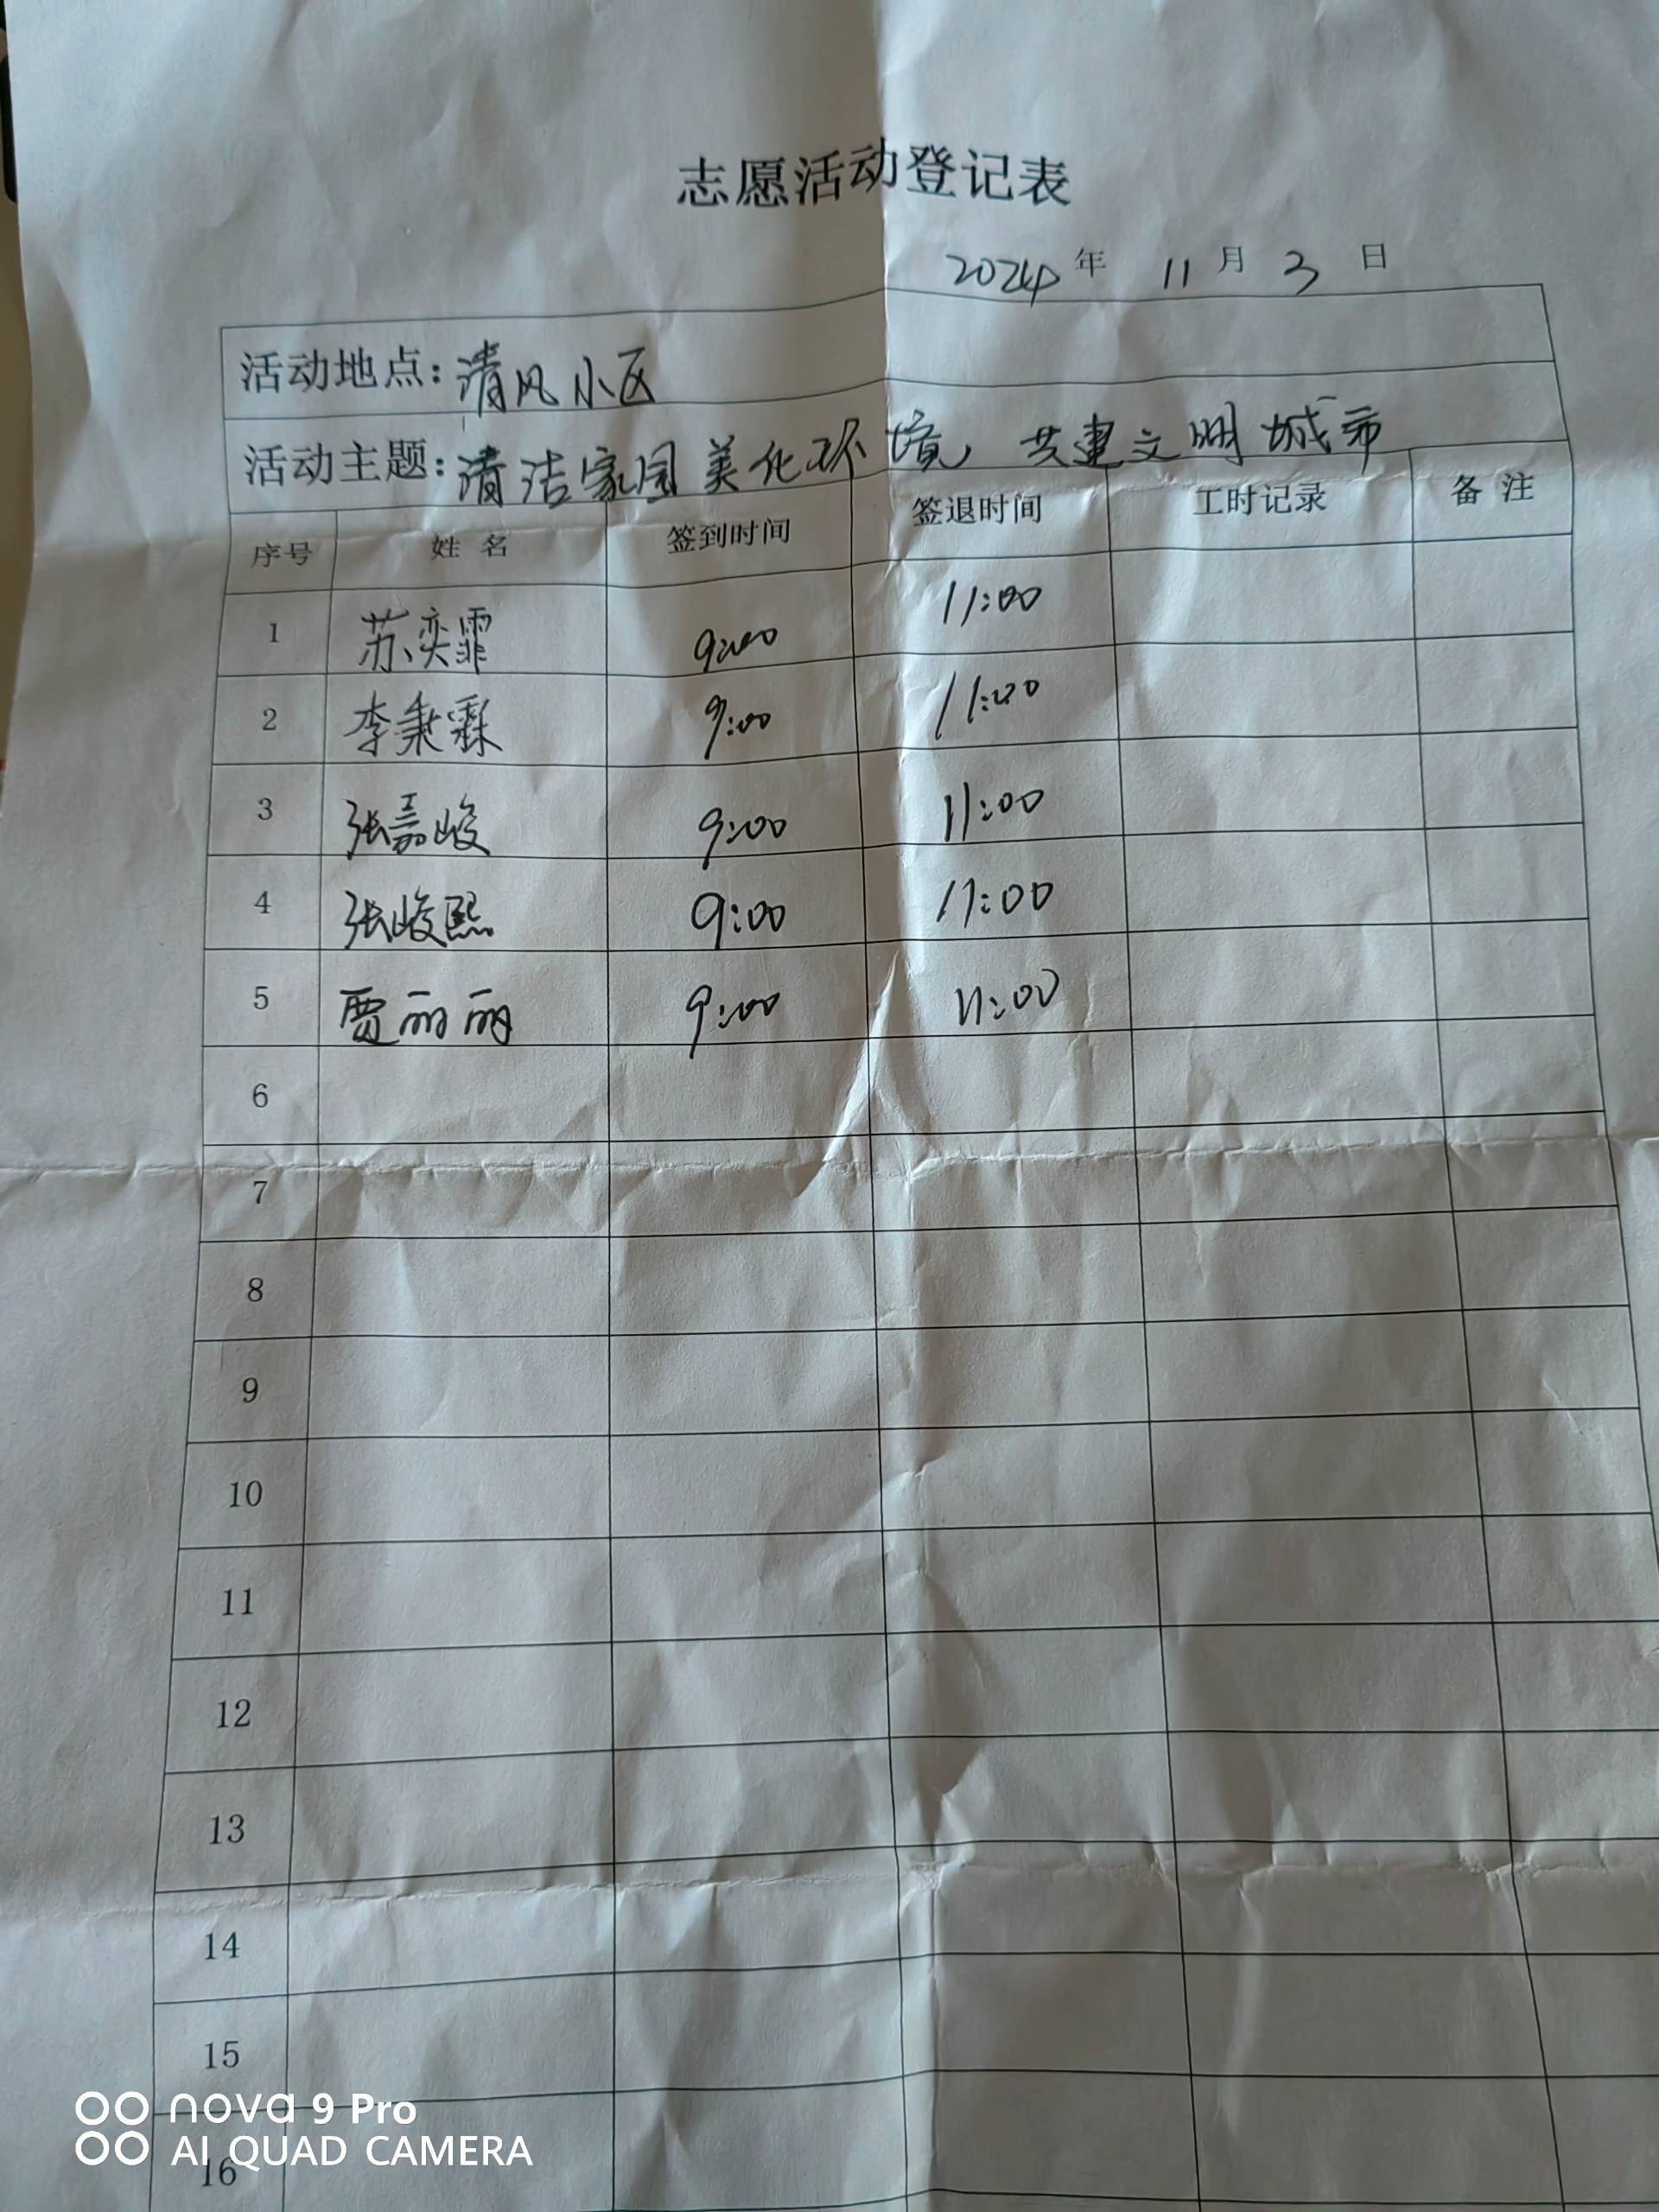 志愿活动登记表
2024年 11月 3日
活动地点:清风小区
活动主题:清洁家园美化环境，共建文明城市
序号 姓名 签到时间 签退时间 工时记录 备注
1 苏奕霏 9:00 11:00
2 李秉霖 9:00 11:00
3 张嘉峻 9:00 11:00
4 张峻熙 9:00 11:00
5 贾丽丽 9:00 11:00
6
7
8
9
10
11
12
13
14
15
16
nova 9 Pro
AI QUAD CAMERA